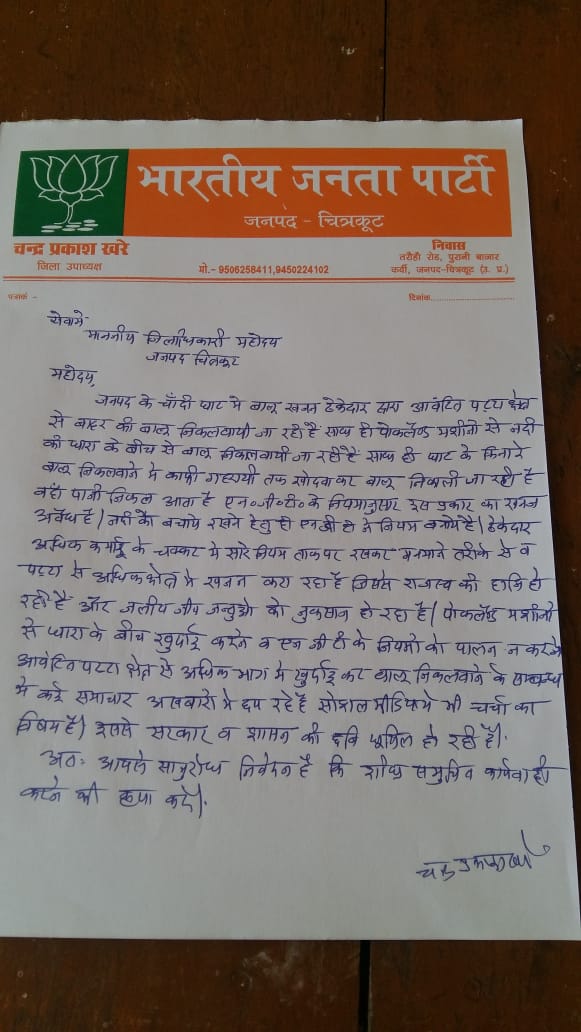 भारतीय जनता पार्टी
जनपद - चित्रकूट
चन्द्र प्रकाश खरे
जिला उपाध्यक्ष
मो.- 9506258411,9450224102
निवास
तरौंहा रोड, पुरानी बाजार
कर्वी, जनपद-चित्रकूट (उ. प्र.)
पत्रांक -
दिनांक
सेवामें
माननीय जिलाधिकारी महोदय
जनपद चित्रकूट
महोदय,
जनपद के चाँदी घाट में बालू खनन ठेकेदार द्वारा आवंटित पट्टा क्षेत्र
से बाहर की बालू निकलवायी जा रही है साथ ही पोकलैण्ड मशीनों से नदी
की धारा के बीच से बालू निकलवायी जा रही है साथ ही घाट के किनारे
बालू निकलवाने में काफी गहरायी तक खोदवाकर बालू निकाली जा रही है
वहाँ पानी निकल आता है एन०जी०टी० के नियमानुसार इस प्रकार का खनन
अवैध है। नदी को बचाये रखने हेतु ही एनजीटी ने नियम बनाये है। ठेकेदार
अधिक कमाई के चक्कर में सारे नियम ताक पर रखकर मनमाने तरीके से व
पट्टा से अधिक क्षेत्र में खनन करा रहा है जिससे राजस्व की हानि हो
रही है और जलीय जीव जन्तुओं को नुकसान हो रहा है। पोकलैण्ड मशीनों
से धारा के बीच खुदाई करने व एनजीटी के नियमों का पालन न करके
आवंटित पट्टा क्षेत्र से अधिक भाग में खुदाई कर बालू निकलवाने के सम्बन्ध
में कई समाचार अखबारों में छप रहे हैं सोशल मीडिया में भी चर्चा का
विषय है। इससे सरकार व शासन की छवि धूमिल हो रही है।
अतः आपसे सानुरोध निवेदन है कि शीघ्र समुचित कार्यवाही
करने की कृपा करें।